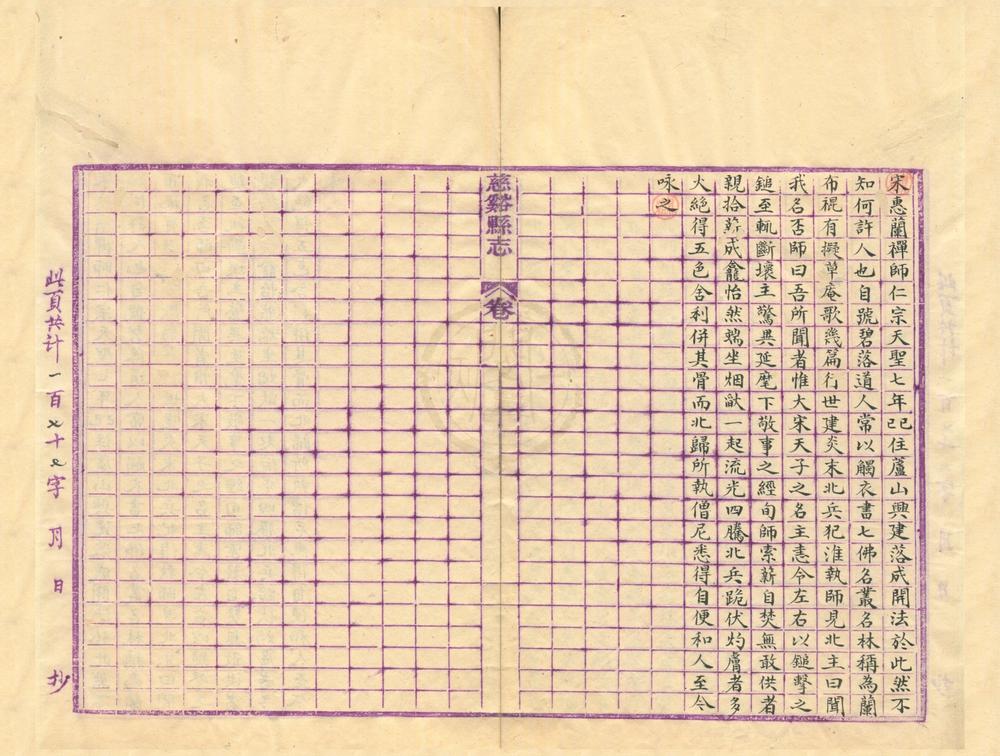 宋惠蘭禪師仁宗天聖七年己巳住蘆山興建落成開法於此然不
知何許人也自號碧落道人常以觸衣書七佛名叢名林稱為蘭
布裩有擬草庵歌幾篇行世建炎末北兵犯淮執師見北主曰聞
我名否師曰吾所聞者惟大宋天子之名主恚令左右以鎚擊之
鎚至輒斷壞主驚異延麾下敬事之經旬師索薪自焚無敢供者
親拾薪成龕怡然端坐烟燄一起流光四騰北兵跪伏灼膚者多
火絕得五色舍利併其骨而北歸所執僧尼悉得自便和人至今
咏之
慈谿縣志 卷
此頁共計一百七十七字 月 日 抄